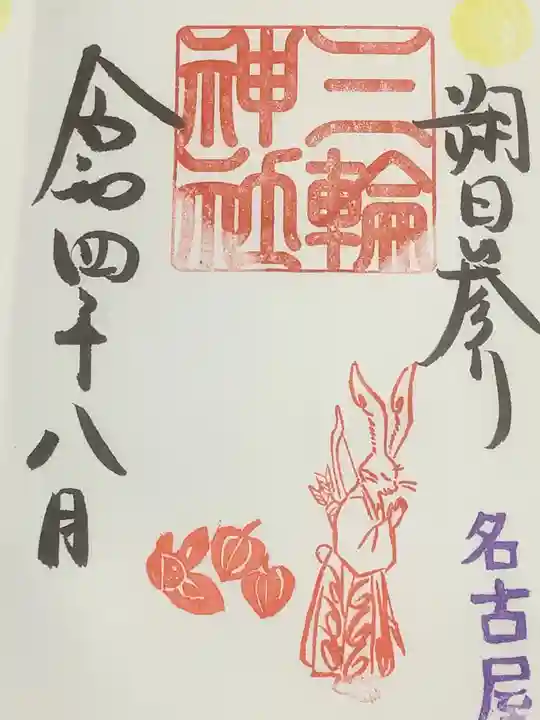 朔日参り
三輪
神社
令和四年八月
名古屋